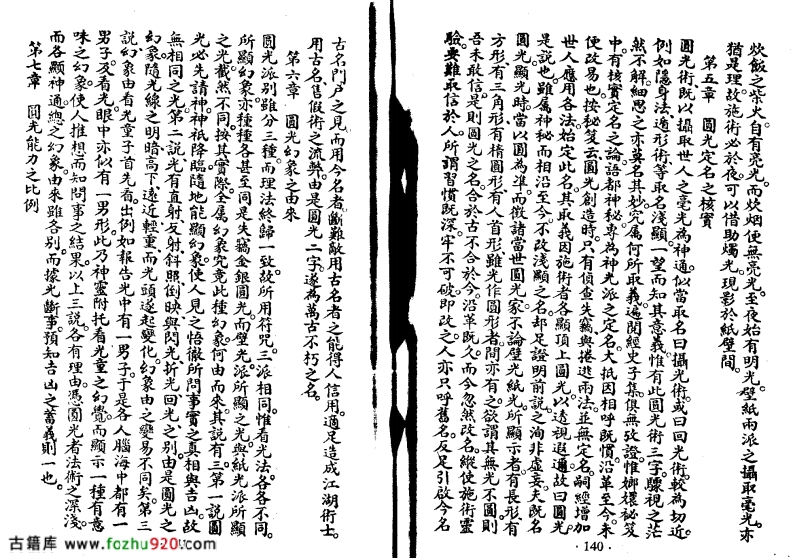 炊飯之柴火。自有亮光。而炊烟便無亮光。至夜始有明光。壁紙兩派之攝取亮光。亦
猶是理。故施術必於夜。可以借助燭光。現影於紙壁間。
第五章 圓光定名之核實
圓光術既以攝取世人之亮光為神通。似當取名曰攝光術。或曰回光術。較為切近。
例如隱身法遁形術等。取名淺顯。一望而知其意義。惟有此圓光術三字。驟視之茫
然不解。細思之亦莫名其妙。究屬何所取義。遍閱經史子集。俱無攷證。惟嫏嬛秘笈
中。有核實定名之論語。都神秘專為神光派之定名。大抵因相呼既慣。沿革至今。未
便改易也。按秘笈云。圓光創造時。只有偵查失竊與捲逃兩法。並無定名。嗣經增加
世人應用各法。始定此名。其取義因施術者各顯頂上圓光。以透視遐邇。故曰圓光。
是說也。雖屬神秘。而相沿至今。不改淺顯之名。却足證明前說之洵非虛妄。夫既名
圓光。顯光時當以圓為準。而徵諸當世圓光家。不論壁光紙光。所顯示者。有長形。有
方形。有三角形。有橢圓形。有人首形。雖光作圓形者。間亦有之。欲謂其無光不圓。則
吾未敢信。是則圓光之名。合於古。不合於今。沿革既久。而今忽然改名。縱使施術靈
驗。要難取信於人。所謂習慣既深。牢不可破。即改之。人亦只呼舊名。反足引啟今名
·140·
古名門户之見。而用今名者。斷難敵用古名者之能得人信用。適足造成江湖術士。
用古名售假術之流弊。由是圓光二字。遂為萬古不朽之名。
第六章 圓光幻象之由來
圓光派別雖分三種。而理法終歸一致。故所用符咒。三派相同。惟看光法。各各不同。
所顯幻象。亦種種各甚。至同是失竊金銀。圓光而壁光派所顯之光。與紙光派所顯
之光。截然不同。按其實際。全屬幻象。究竟此種幻象何由而來。其說有三。第一說。圓
光必先請神。神祇降臨。隨地能顯幻象。使人見之。悟徹所問事實之真相與吉凶。故
無相同之光。第二說。光有直射反射斜照倒映。與閃光折光回光之別。由是圓光之
幻象。隨光線之明暗高下遠近輕重。而光頭遂起變化。幻象由之變易不同矣。第三
說。幻象由看光童子首先看出。例如報告光中有一男子。于是各人腦海中。都有一
男子。及看光。眼中亦似有一男形。此乃神靈附托看光童之幻覺。而顯示一種有意
味之幻象。使人推想而知問事之結果。以上三說。各有理由。憑圓光者法術之深淺。
而各顯神通。總之幻象由來雖各別。而據光斷事。預知吉凶之蓄義則一也。
第七章 圓光能力之比例
古籍库: www.fozhu920.com